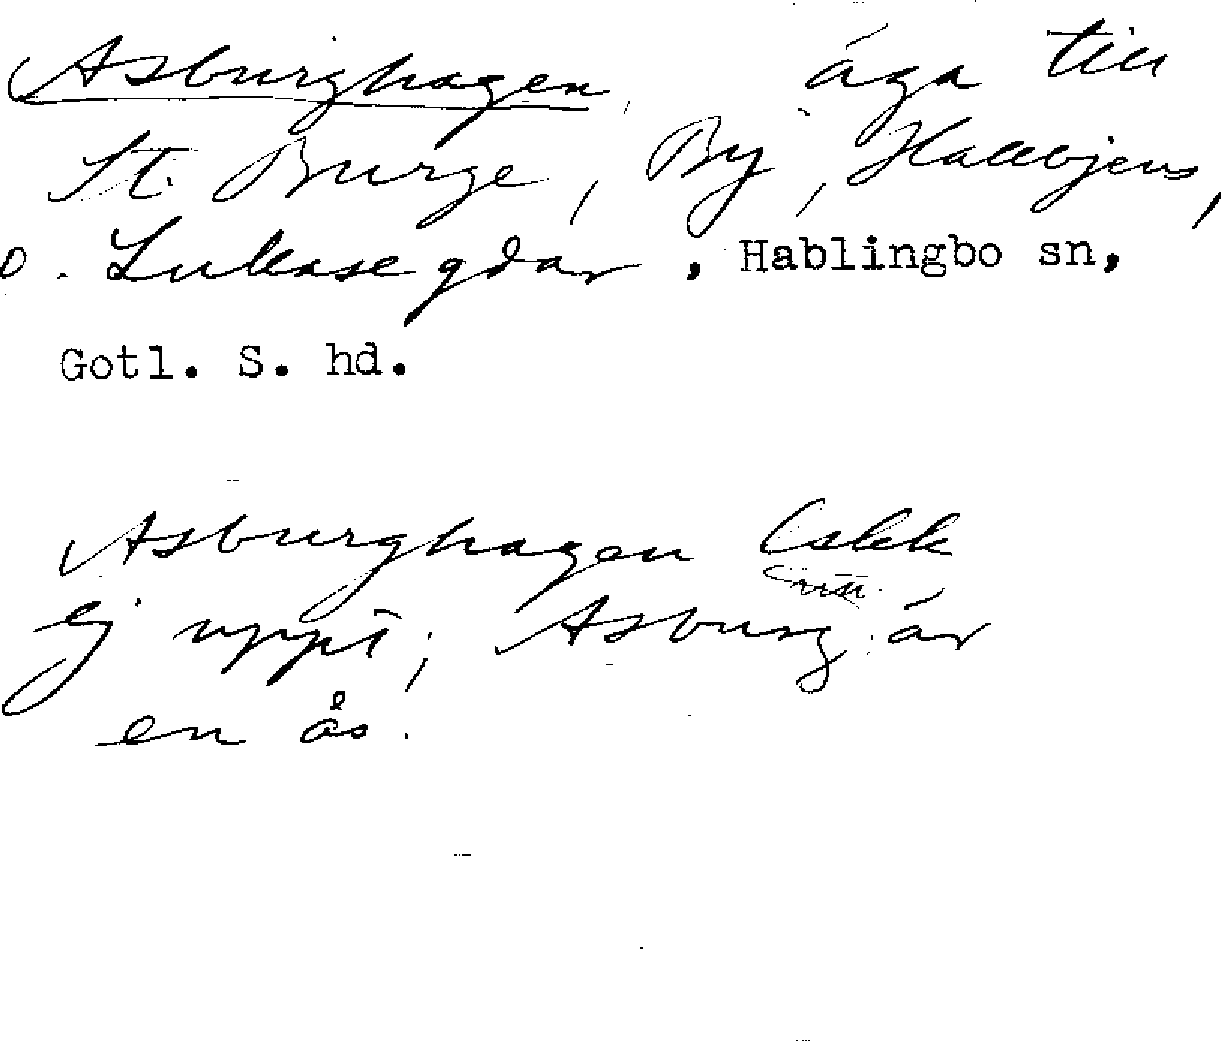 Asburghagen, äga till
St. Burge, By, Hallvjens,
o. Lukase gdar, Hablingbo sn,
Gotl. S. hd.
Asburghagen Eskk
ej uppt; Asburg är
en ås.